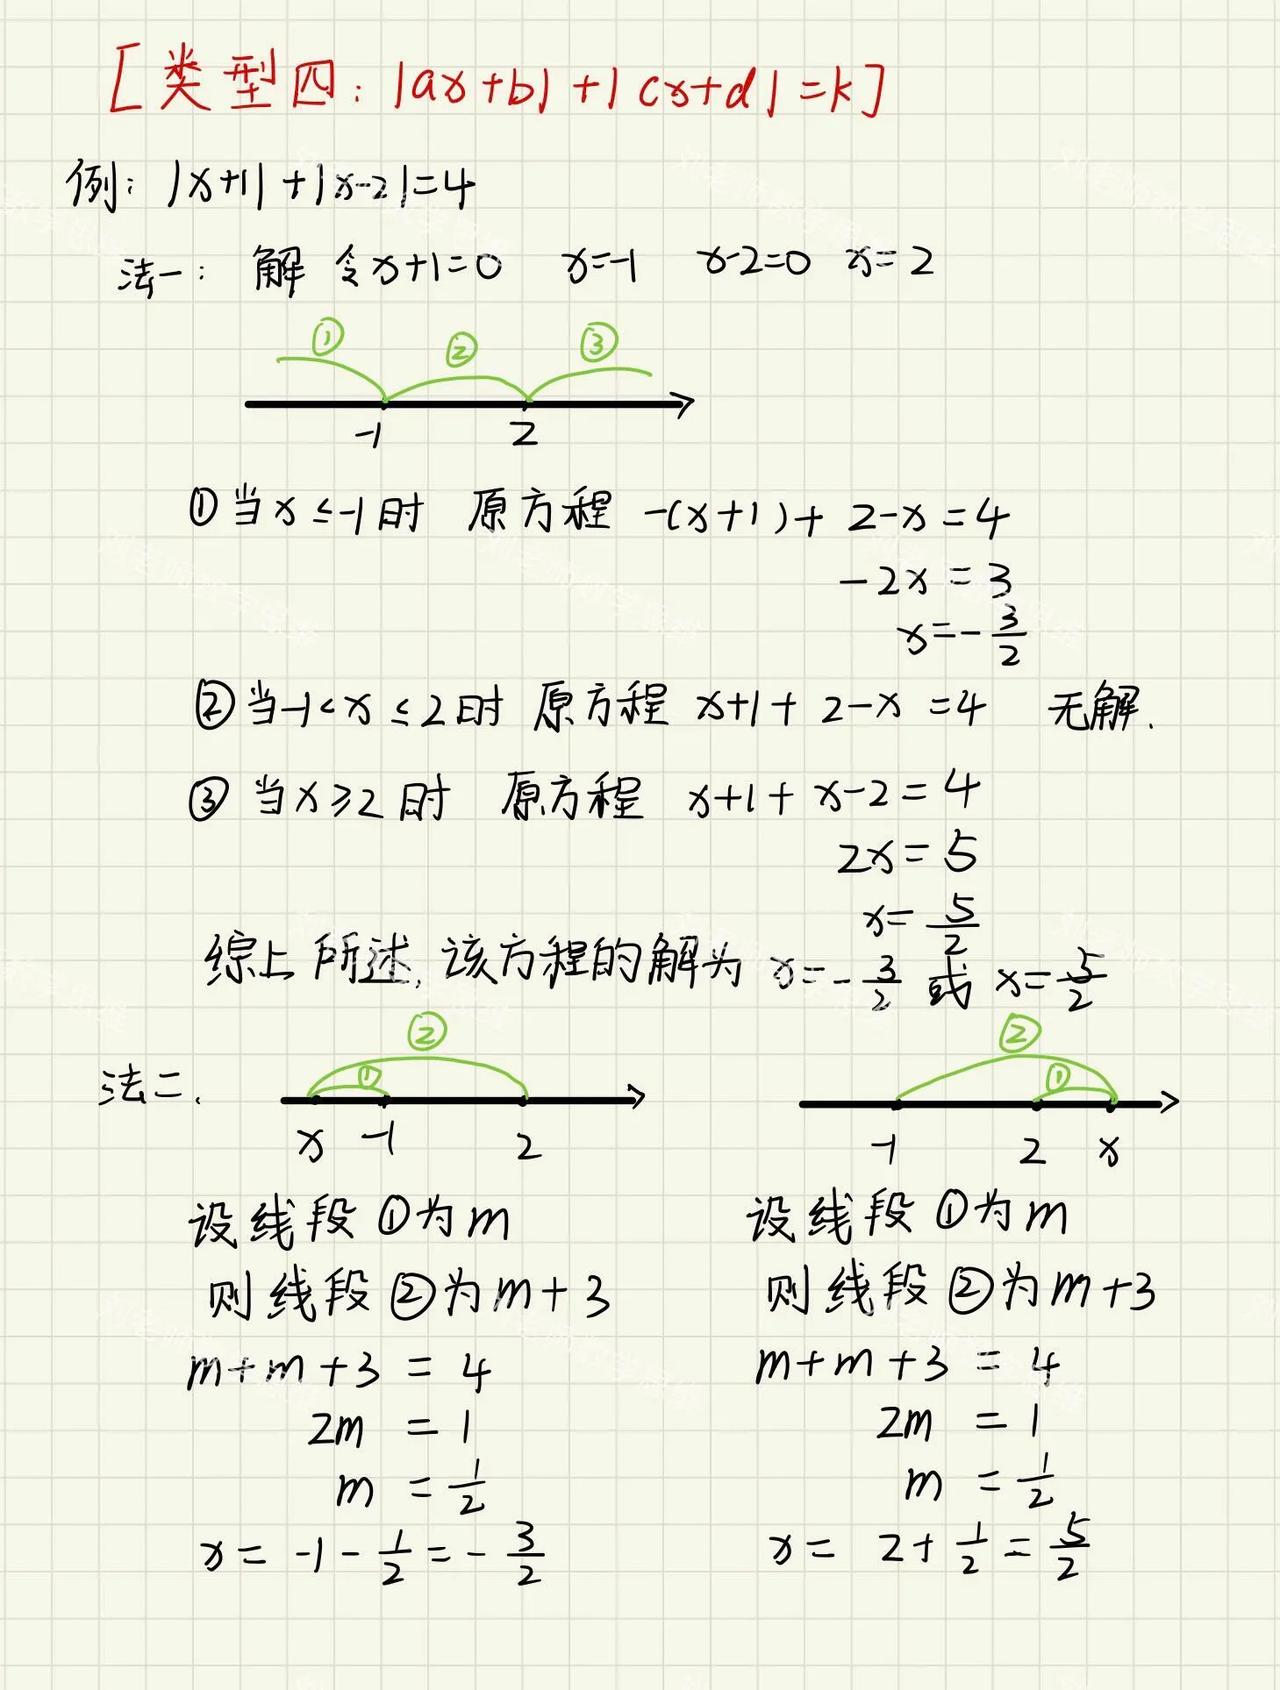 [类型四：|ax+b|+|cx+d|=k]
例：|x+1|+|x-2|=4
法一：解 令x+1=0 x=-1 x-2=0 x=2
① ② ③
-1 2
①当x≤-1时 原方程 -(x+1)+2-x=4
-2x=3
x=-3/2
②当-1<x≤2时 原方程 x+1+2-x=4 无解.
③当x≥2时 原方程 x+1+x-2=4
2x=5
x=5/2
综上所述,该方程的解为 x=-3/2 或 x=5/2
法二.
② ①
x -1 2
设线段①为m
则线段②为m+3
m+m+3=4
2m=1
m=1/2
x=-1-1/2=-3/2
② ①
-1 2 x
设线段①为m
则线段②为m+3
m+m+3=4
2m=1
m=1/2
x=2+1/2=5/2